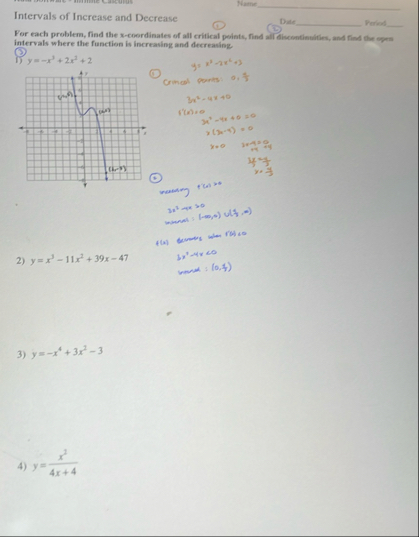 Name
Intervals of Increase and Decrease
Date Period
For each problem, find the x-coordinates of all critical points, find all discontinuities, and find the open
intervals where the function is increasing and decreasing.
1) y = -x³ + 2x² + 2
y = x³ - 2x² + 2
Critical points: 0, 4/3
3x² - 4x + 0
f'(x) = 0
3x² - 4x + 0 = 0
x(3x - 4) = 0
x = 0
x = 4/3
Increasing f'(x) > 0
3x² - 4x > 0
Interval: (-∞, 0) ∪ (4/3, ∞)
f(x) decreasing when f'(x) < 0
3x² - 4x < 0
Interval: (0, 4/3)
2) y = x³ - 11x² + 39x - 47
3) y = -x⁴ + 3x² - 3
4) y = x² / (4x + 4)